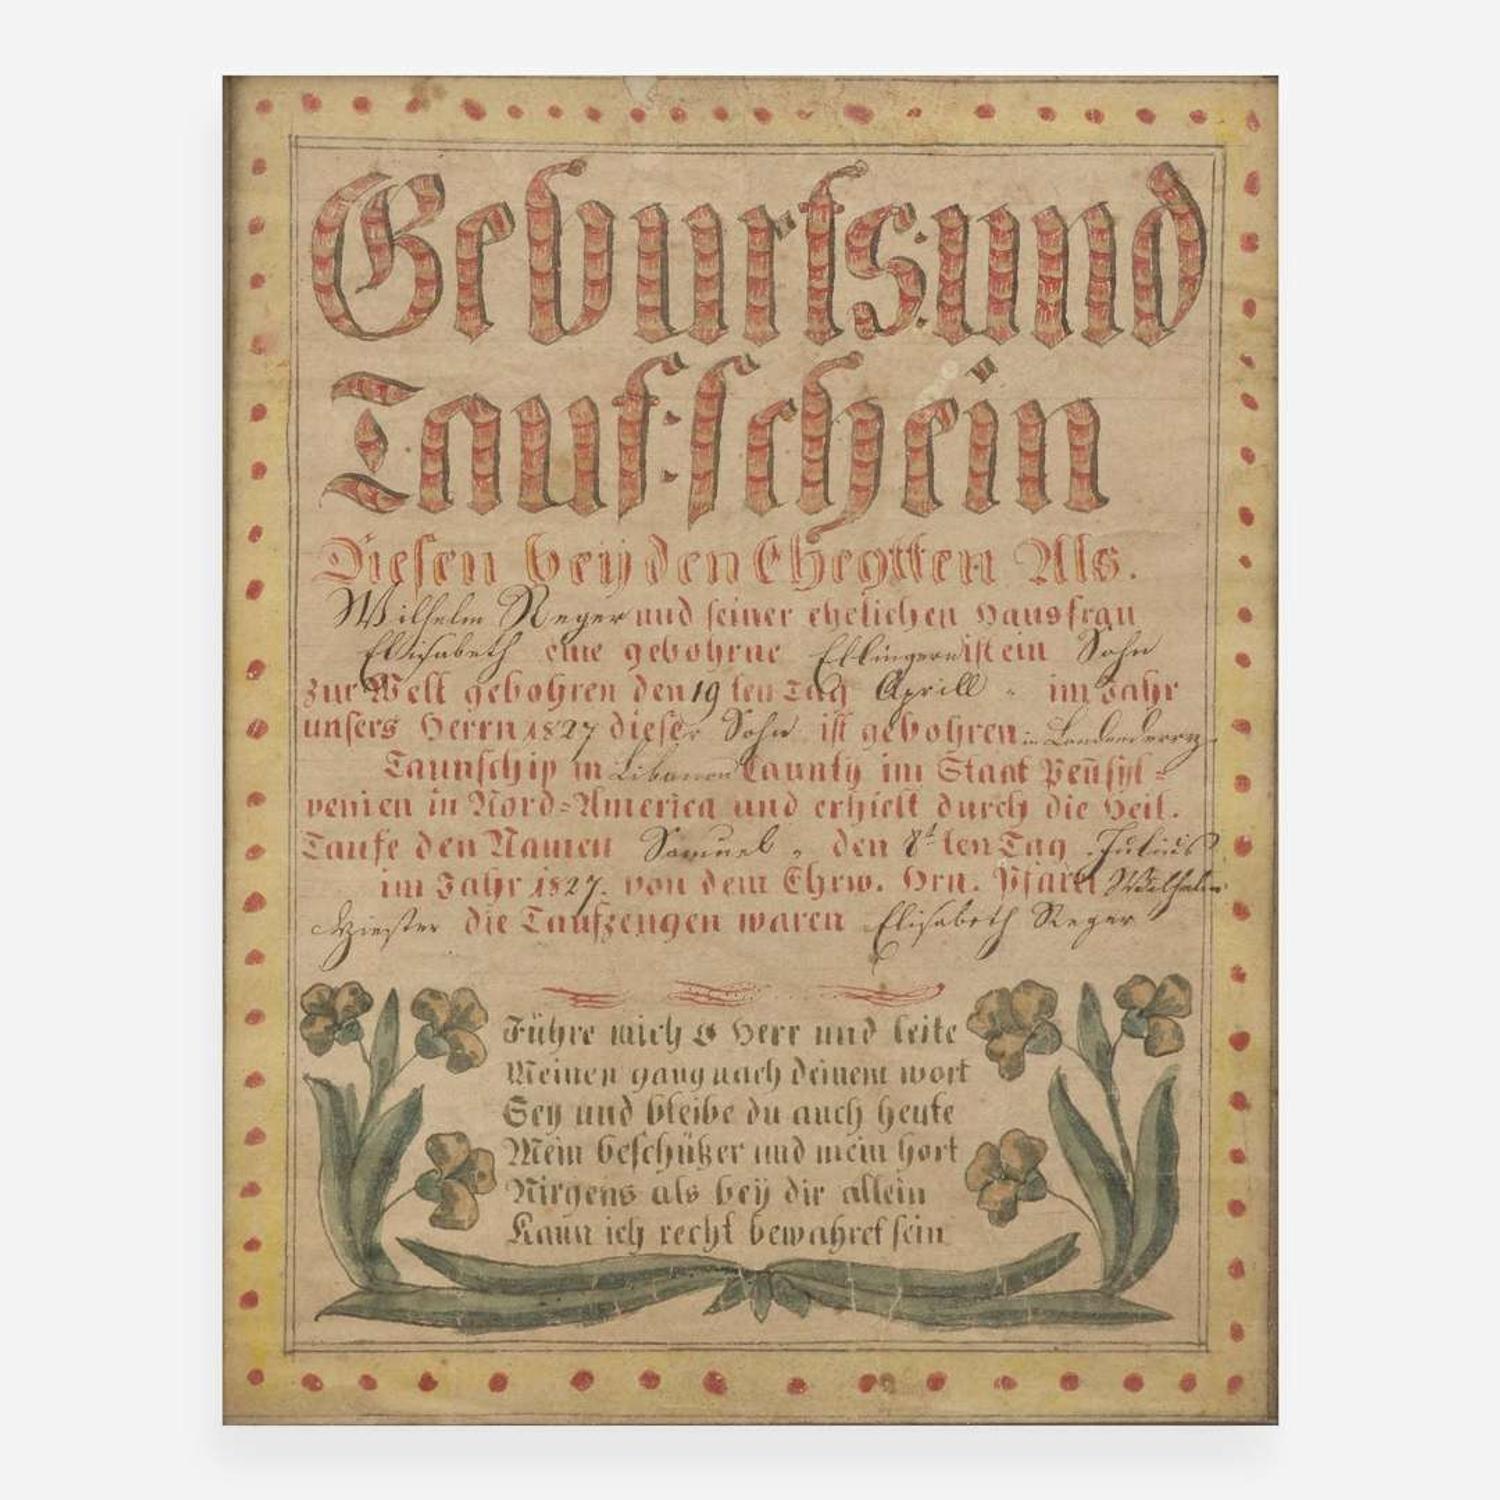 Geburts und
Tauf: schein
Diesen beÿden Ehegatten Als.
Wilhelm Reger und seiner ehelichen Hausfrau
Elisabeth eine gebohrne Ellingern ist ein Sohn
zur Welt gebohren den 19 ten Tag Aprill im Jahr
unsers Herrn 1827 dieser Sohn ist gebohren in Londonderry
Taunschip in Libanon Caunty im Staat Pen̄syl=
venien in Nord=America und erhielt durch die Heil.
Taufe den Namen Samuel den 8t ten Tag Julius
im Jahr 1827. von dem Ehrw. Hrn. Pfarer Wilhelm
die Taufzeugen waren Elisabeth Reger
Führe mich O Herr und leite
Meinen gang nach deinem wort
Sey und bleibe du auch heute
Mein beschützer und mein hort
Nirgens als beÿ dir allein
Kann ich recht bewahret sein